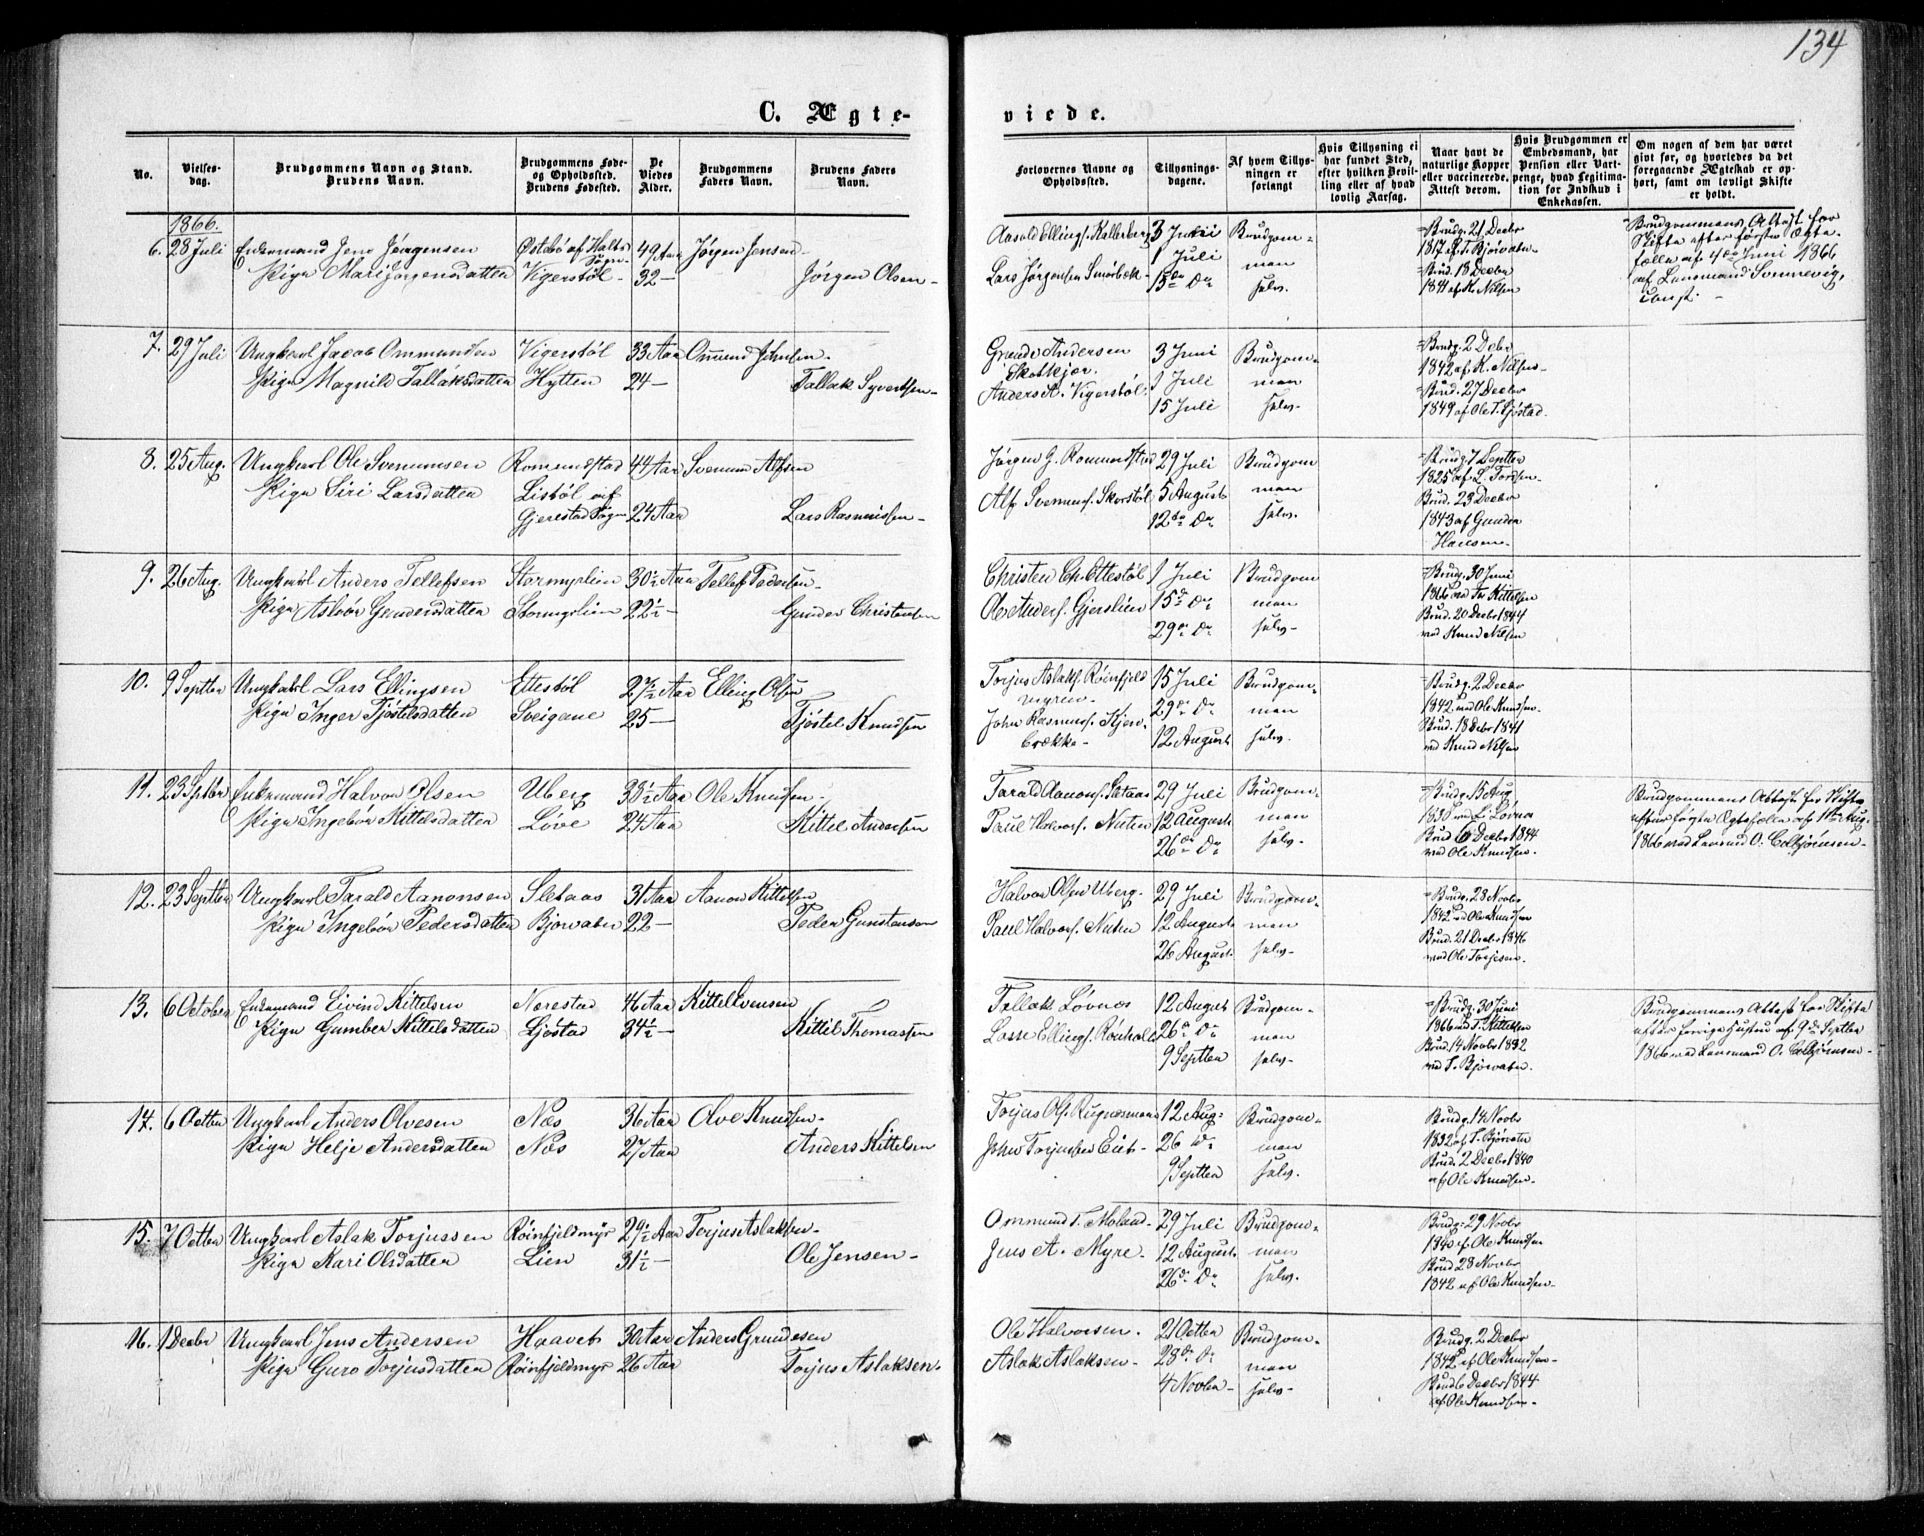 134
C. Ægte-
viede.
No.
Vielses-
dag.
Brudgommens Navn og Stand.
Brudens Navn.
Brudgommens Føde-
og Opholdssted.
Brudens Fødested.
De
Viedes
Alder.
Brudgommens
Faders Navn.
Brudens Faders
Navn.
Forlovernes Navne og
Opholdssted.
Tillysnings-
dagene.
Af hvem Tillys-
ningen er
forlangt
Hvis Tillysning ei
har fundet Sted,
efter hvilken Bevil-
ling eller af hvad
lovlig Aarsag.
Naar havt de
naturlige Kopper
eller vaccinerede.
Attest derom.
Hvis Brudgommen er
Embedsmand, har
Pension eller Vart-
penge, hvad Legitima-
tion for Indskud i
Enkekassen.
Om nogen af dem har været
givt før, og hvorledes da det
foregaaende Ægteskab er op-
hørt, samt om lovligt Skifte
er holdt.
1866.
6. 28 Juli Enkemand Jens Jørgensen Østebø af Holts Sogn 49 Aar Jørgen Jensen
Pige Mari Jørgensdatter Vigerstøl 32 — Jørgen Olsen
Lars Jørgensen
3 Juni
1 Juli
15de Do
Brudgom-
man
selv.
Brudg. 21 Decbr
1817 af T. Bjorvatn
Brud. 18 Decbr
1841 af K. Nilsen
Brudgommens Attest for
Skifte efter første Ægte-
fælle af 4de Juni 1866
af Lensmand Sonnevig,
const.
7. 29 Juli Ungkarl Jacob Ommundsen Vigerstøl 33 Aar Omund Johnsen
Pige Magnild Tallaksdatter Hytten 24 — Tallak Syvertsen
Grunde Andersen
Skotkjær.
Anders A. Vigerstøl
3 Juni
1 Juli
15 Juli
Brudgom-
man
selv.
Brudg. 2 Decbr
1842 af K. Nilsen
Brud. 27 Decbr
1849 af Ole T. Gjøstad.
8. 25 Aug. Ungkarl Ole Svenumsen Romundstad 44 Aar Svenum Alfsen
Pige Siri Larsdatter Listøl af
Gjerestad Sogn 24 Aar Lars Rasmusen
Jørgen G. Romundstad
Alf Svenums. Skorstøl
29 Juli
5 August
12te Do
Brudgom
man
selv.
Brudg. 7 Septbr
1825 af L. Tordsen
Brud. 23 Decbr
1843 af Gunder
Hansen
9. 26 Aug. Ungkarl Anders Tellefsen Stormyrlien 30½ Aar Tellef Pedersen
Pige Asbør Gundersdatter Stormyrlien 22½ — Gunder Christensen
Christen Ch. Ettestøl
Ole Anders. Gjerslien
1 Juli
15de Do
29de Do
Brudgom
man
selv
Brudg. 30 Juni
1866 ved Ts Kittelsen
Brud. 20 Decbr 1844
ved Knud Nilsen
10. 9 Septbr Ungkarl Lars Ellingsen Ettestøl Aar Elling Olsen
Pige Inger Tjøstelsdatter Sveigane 25 — Tjøstel Knudsen
Torjus Aslaks. Røinfjeld
myren
John Rasmus. Kjen-
brække
15 Juli
29de Do
12 August
Brudgom-
man
selv.
Brudg. 2 Decbr
1842 ved Ole Knudsen
Brud. 18 Debr 1841
ved Knud Nilsen
11. 23 Septbr Enkemand Halvor Olsen Uberg 38½ Aar Ole Knudsen
Pige Ingebor Kittelsdatter Løve 24 Aar Kittel Andersen
Tarald Aanons. Sletaas
Paul Halvors. Nuten
29 Juli
12 August
26de Do
Brudgom-
man
selv.
Brudg. 15 Aug
1830 ved L. Løvnes
Brud 6 Decbr 1844
ved Ole Knudsen.
Brudgommens Attest for Skifte
efter første Ægtefælle af 11te Aug.
1866 ved Lensmd O. Colbjørnsen
12. 23 Septbr Ungkarl Tarald Aanonsen Sletaas 31 Aar Aanon Kittelsen
Pige Ingebor Pedersdatter Bjorvatn 22 — Peder Gunstensen
Halvor Olsen Uberg
Paul Halvors. Nuten
29 Juli
12 August
26 August
Brudgom-
man
selv.
Brudg. 28 Novbr
1842 ved Ole Knudsen
Brud. 21 Decbr 1846
ved Ole Torjesen.
13. 6 October Enkemand Eivind Kittelsen Nerestad 46 Aar Kittel Evensen
Pige Gumber Kittelsdatter Ljøstad 34½ — Kittil Thomassen
Tallak Løvnes
Lasse Ellings. Røinholt
12 August
26de Do
9 Septbr
Brudgom-
man
selv-
Brudg. 30 Juni
1866 ved T. Kittelsen
Brud. 14 Novbr 1832
ved T. Bjorvatn.
Brudgommens Attest for Skifte
efter forrige Hustru af 9de Septbr
1866 ved Lensmand O. Colbjørnsen
14. 6 Octbr Ungkarl Anders Olvesen Næs 36 Aar Olve Knudsen
Pige Helje Andersdatter Næs 27 Aar Anders Kittelsen
Torjus Ols. Rugnesmoen
John Torjussen Eiet
12 Aug.
26 Do
9 Septbr
Brudgom-
man
selv-
Brudg. 14 Novbr
1832 af T. Bjorvatn
Brud. 2 Decbr 1840
af Ole Knudsen.
15. 7 Octbr Ungkarl Aslak Torjussen Røinfjeldmyr 29½ Aar Torjus Aslaksen
Pige Kari Olsdatter Lien 31½ — Ole Jensen
Ommund T. Moland
Jens A. Myre.
29 Juli
12 August
26de Do
Brudgom-
man
selv.
Brudg. 29 Novbr
1840 af Ole Knudsen
Brud 28 Novbr
1842 af Ole Knudsen
16. 1 Decbr Ungkarl Jens Andersen Haavet 30 Aar Anders Grundesen
Pige Guro Torjusdatter Røinfjeldmyr 26 Aar Torjus Aslaksen.
Ole Halvorsen.
Aslak Aslaksen
21 Octbr
28de Do
4 Novbr
Brudgom-
man
selv-
Brudg. 2 Decbr
1842 af Ole Knudsen
Brud 6 Decbr 1844
af Ole Knudsen.